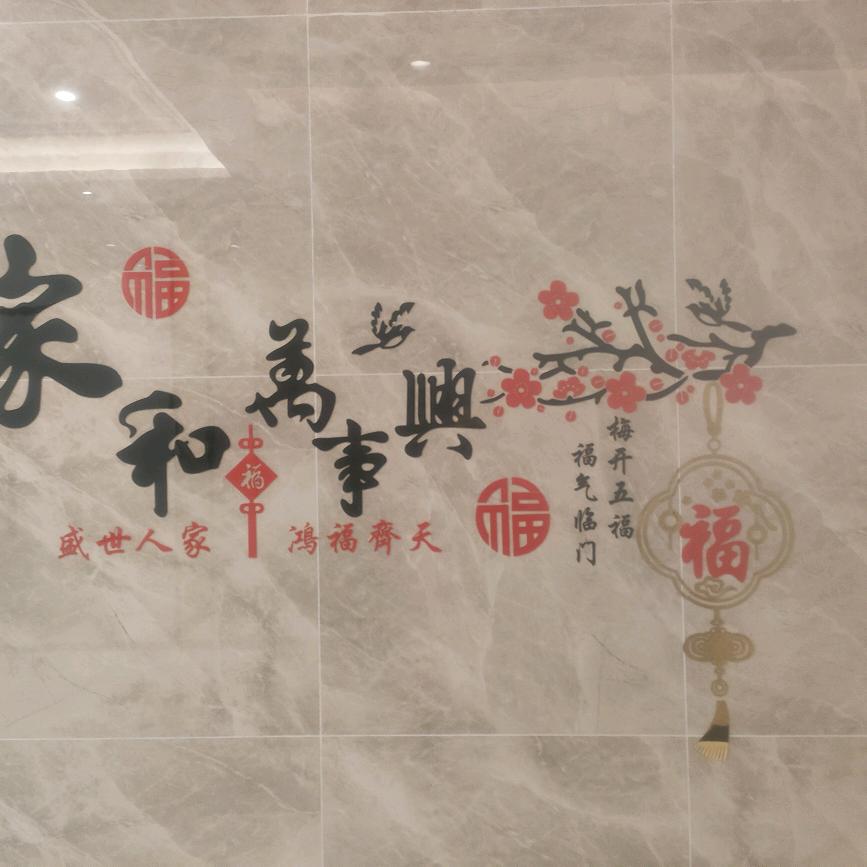 家和萬事興
福
福
盛世人家 鴻福齊天
福
梅开五福
福气临门
福